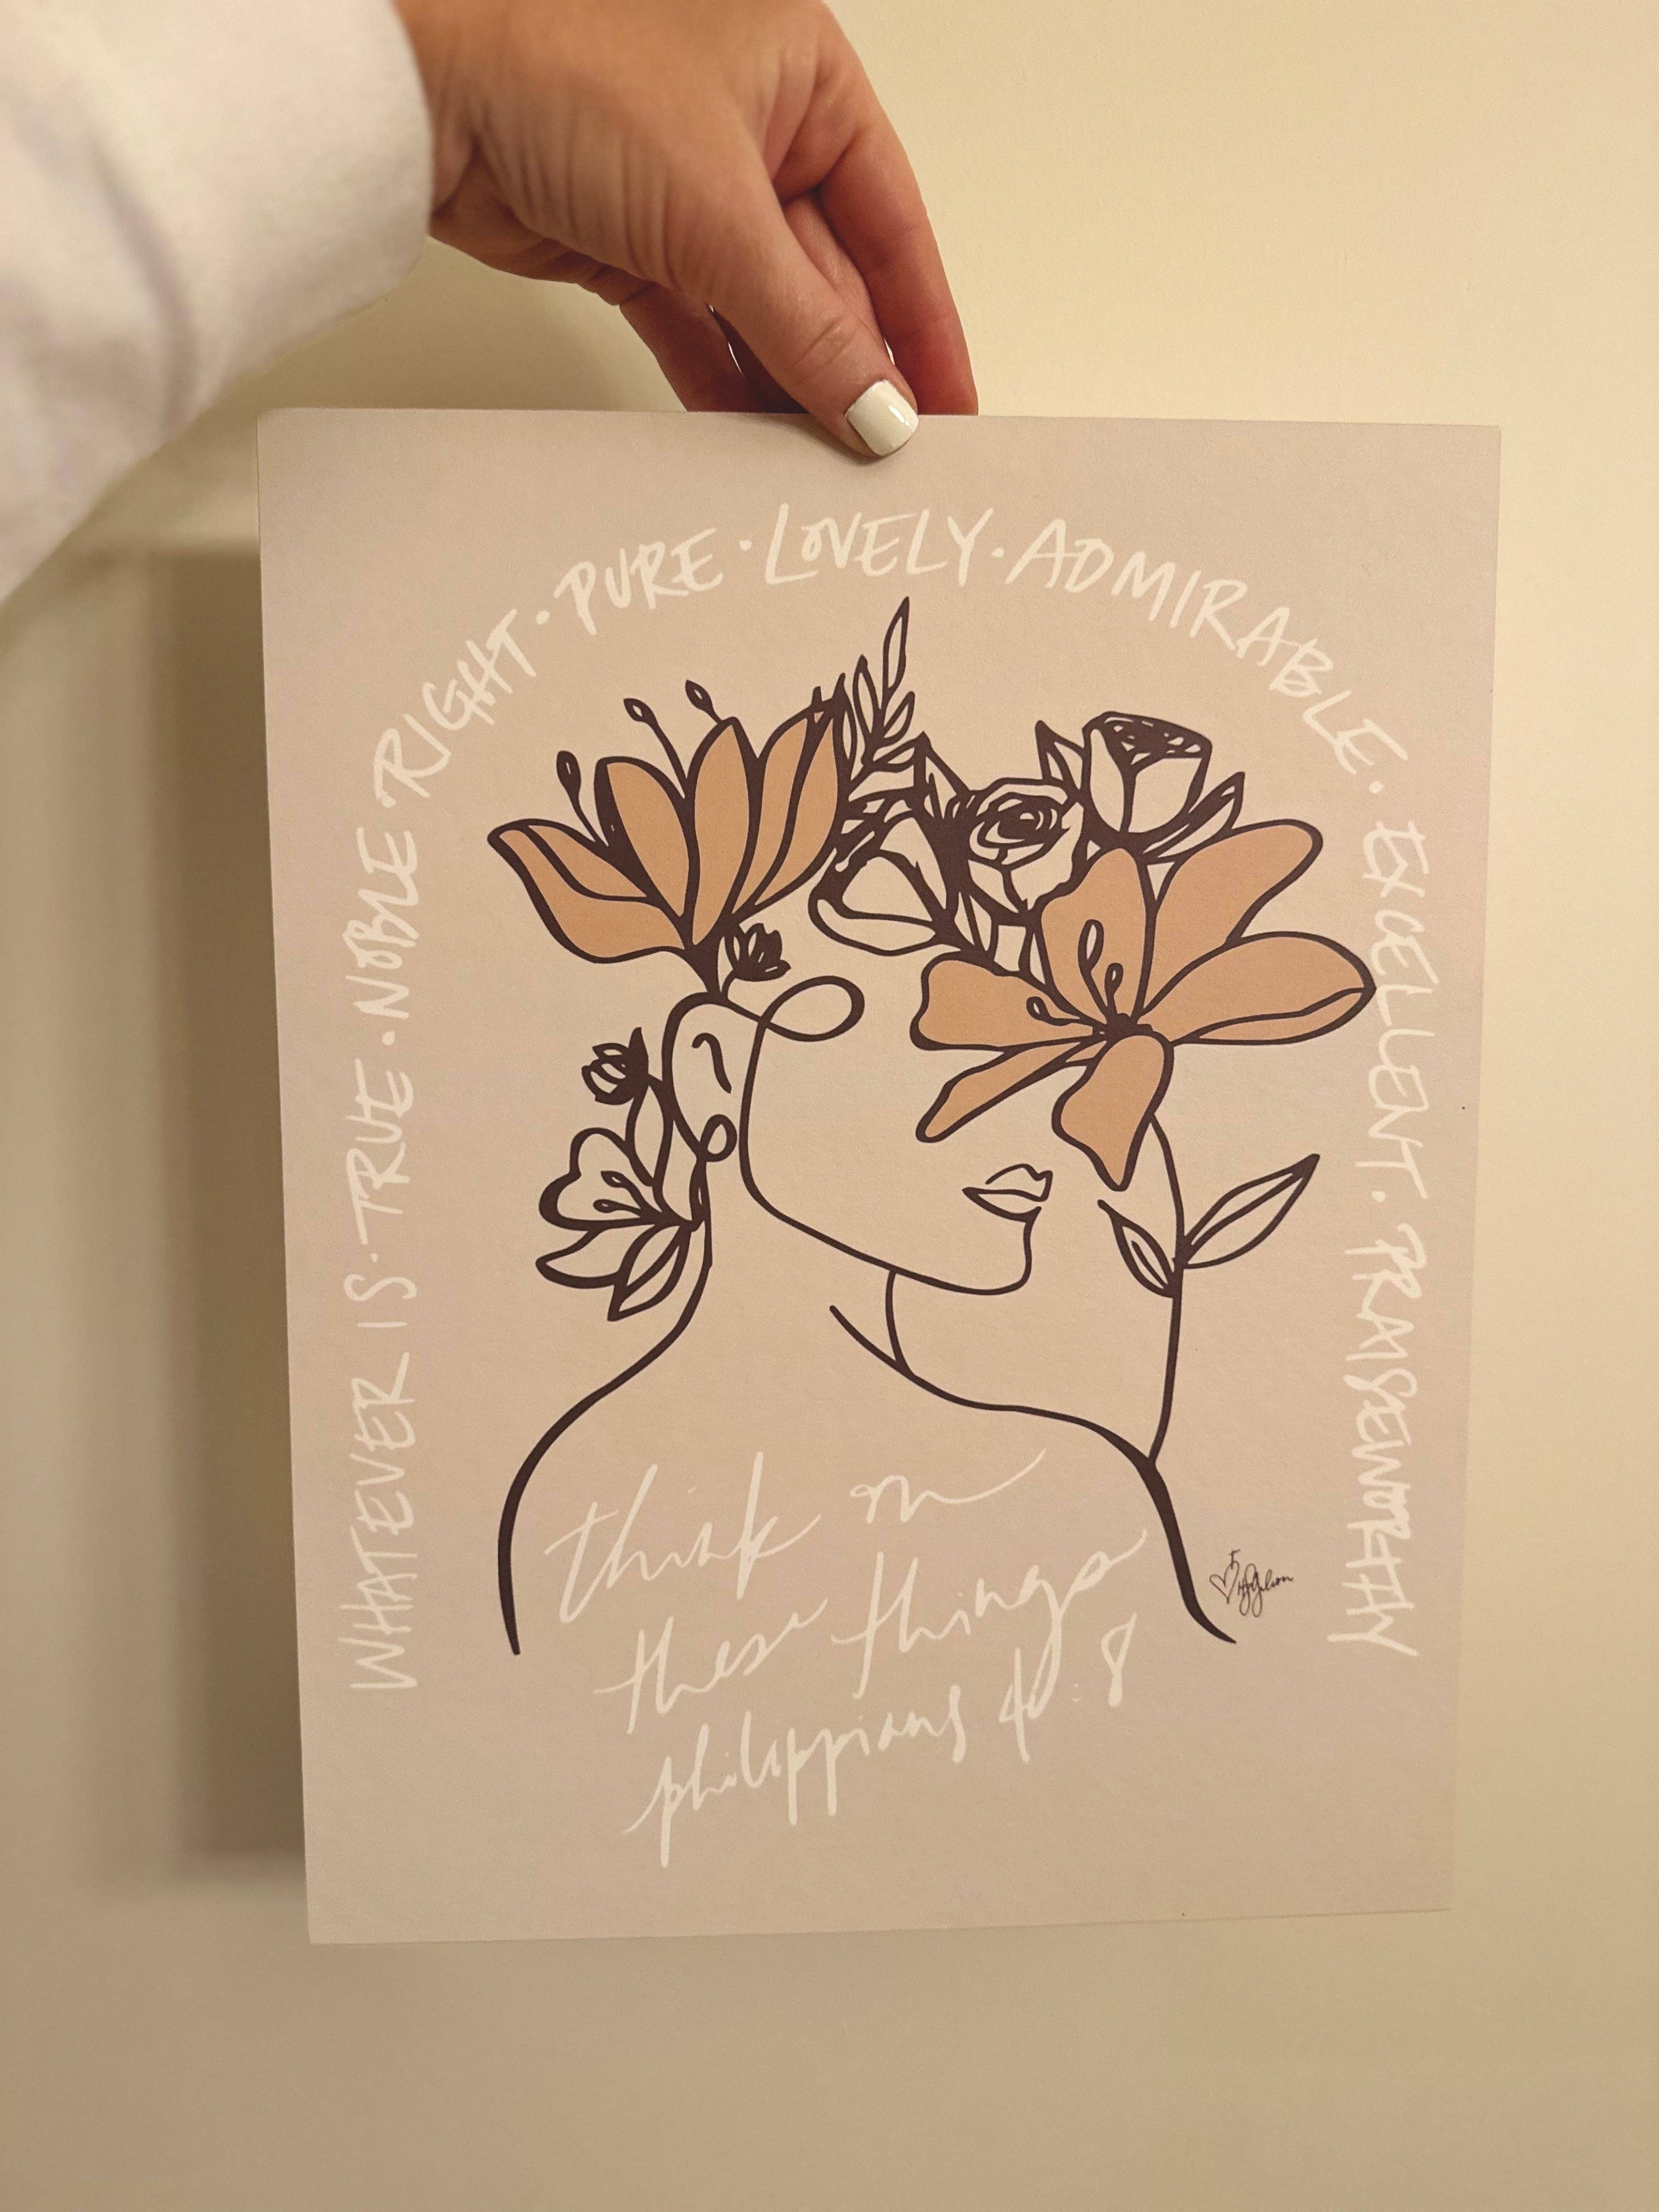 WHATEVER IS · TRUE · NOBLE · RIGHT · PURE · LOVELY · ADMIRABLE · EXCELLENT · PRAISEWORTHY
think on
these things
philippians 4:8